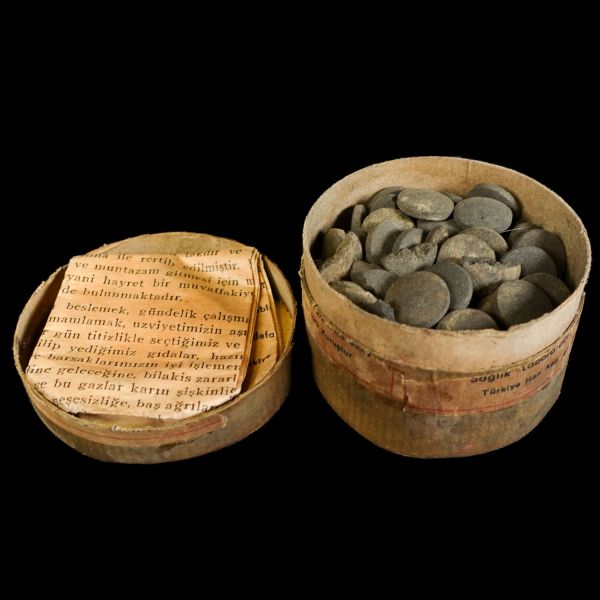 ile tertip edilir ve
ve muntazam gitmesi için
edilmiştir.
yani hayret bir muvaffakiye
de bulunmaktadır.
beslemek, gündelik çalışma
mamlamak, uzviyetimizin aşı
gün titizlikle seçtiğimiz ve
ilip yediğimiz gıdalar, hazır
e barsaklarımızın iyi işlemem
ine geleceğine, bilakis zararl
ge bu gazlar karın şişkinliği
eşesizliğe, baş ağrıla
defa
kiye
Kuruştur
Sağlık Labora
Türkiye Han